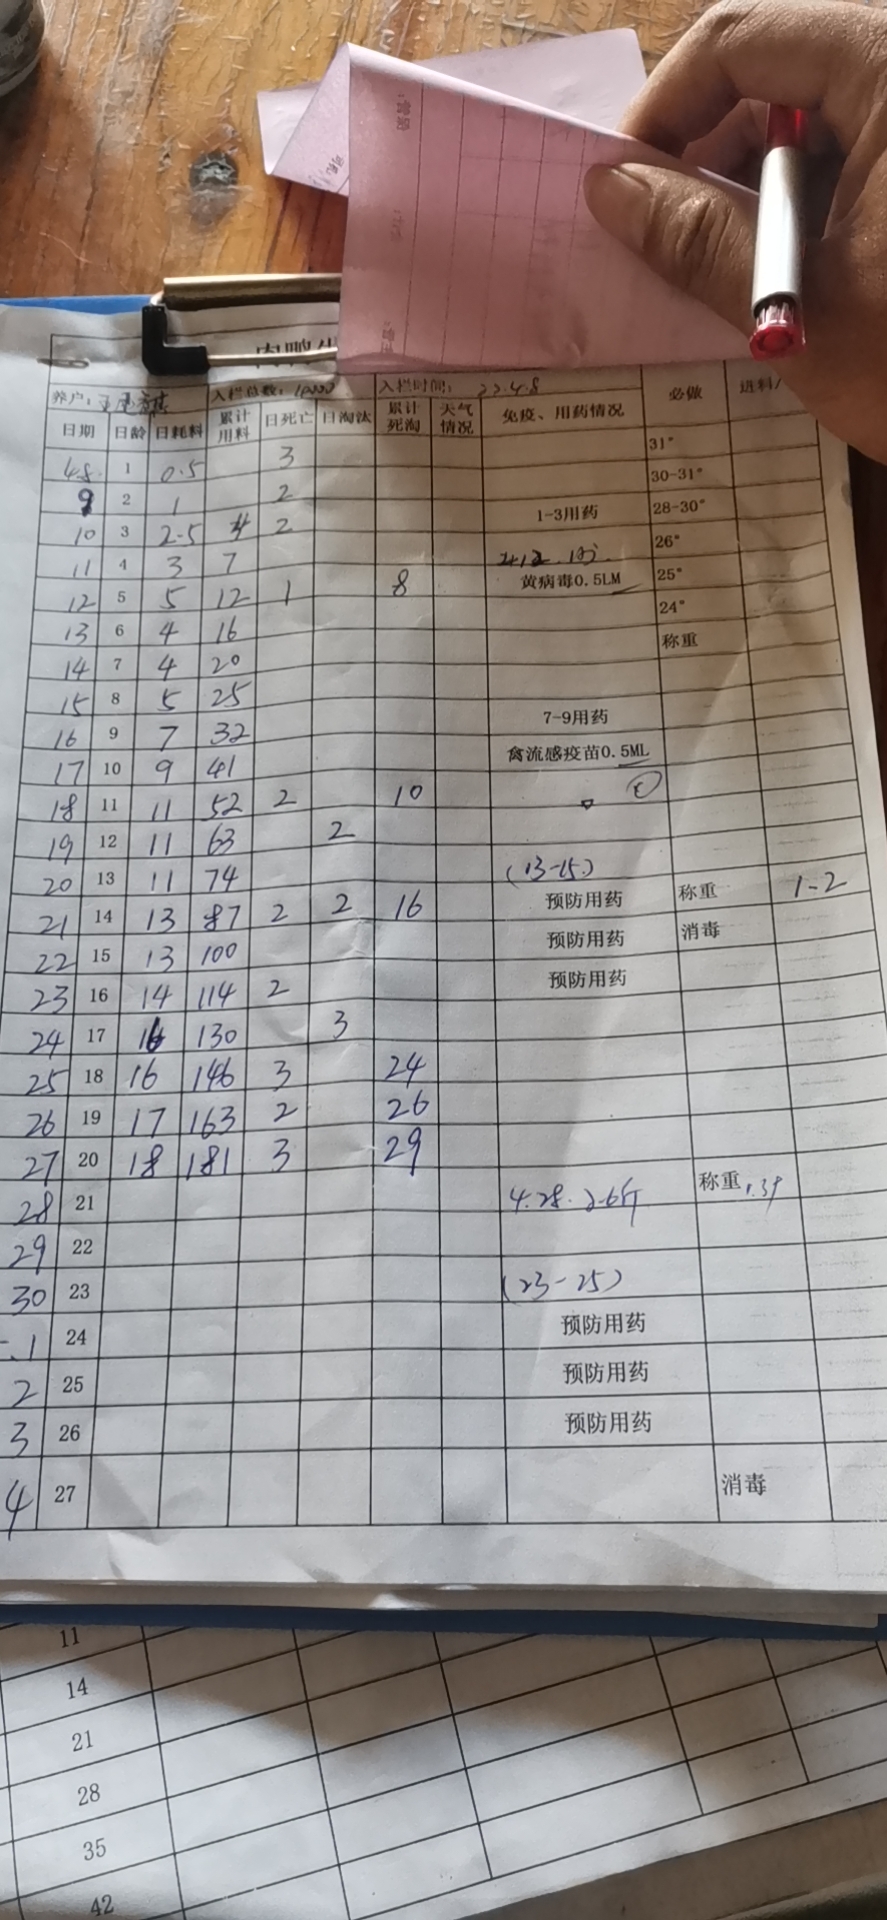 肉鸭
养户: 入栏总数: 10000 入栏时间: 22.4.8 必做 进料/
日期 日龄 日耗料 累计用料 日死亡 日淘汰 累计死淘 天气情况 免疫、用药情况
4.8. 1 0.5 3 31°
9 2 1 2 30-31°
10 3 2.5 4 2 1-3用药 28-30°
11 4 3 7 26°
12 5 5 12 1 8 黄病毒0.5LM 25°
13 6 4 16 24°
14 7 4 20 称重
15 8 5 25
16 9 7 32 7-9用药
17 10 9 41 禽流感疫苗0.5ML
18 11 11 52 2 10
19 12 11 63 2
20 13 11 74 (13-15)
21 14 13 87 2 2 16 预防用药 称重 1-2
22 15 13 100 预防用药 消毒
23 16 14 114 2 预防用药
24 17 16 130 3
25 18 16 146 3 24
26 19 17 163 2 26
27 20 18 181 3 29
28 21 4.28. 2.6斤 称重
29 22
30 23 (23-25)
.1 24 预防用药
2 25 预防用药
3 26 预防用药
4 27 消毒
11
14
21
28
35
42